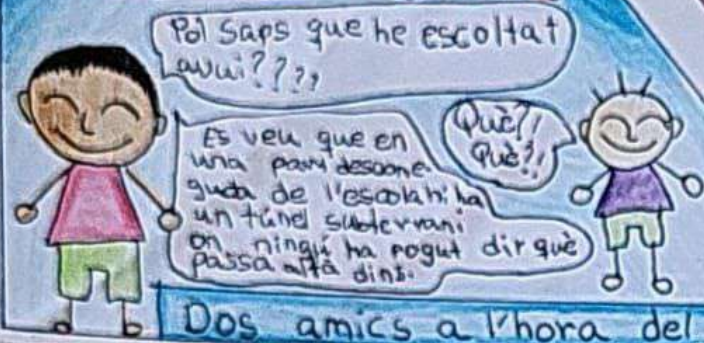 Pol saps que he escoltat
avui????
Què?!
Què?!
Es veu que en
una part descone-
guda de l'escola hi ha
un túnel subterrani
on ningú ha pogut dir què
passa allà dins.
Dos amics a l'hora del